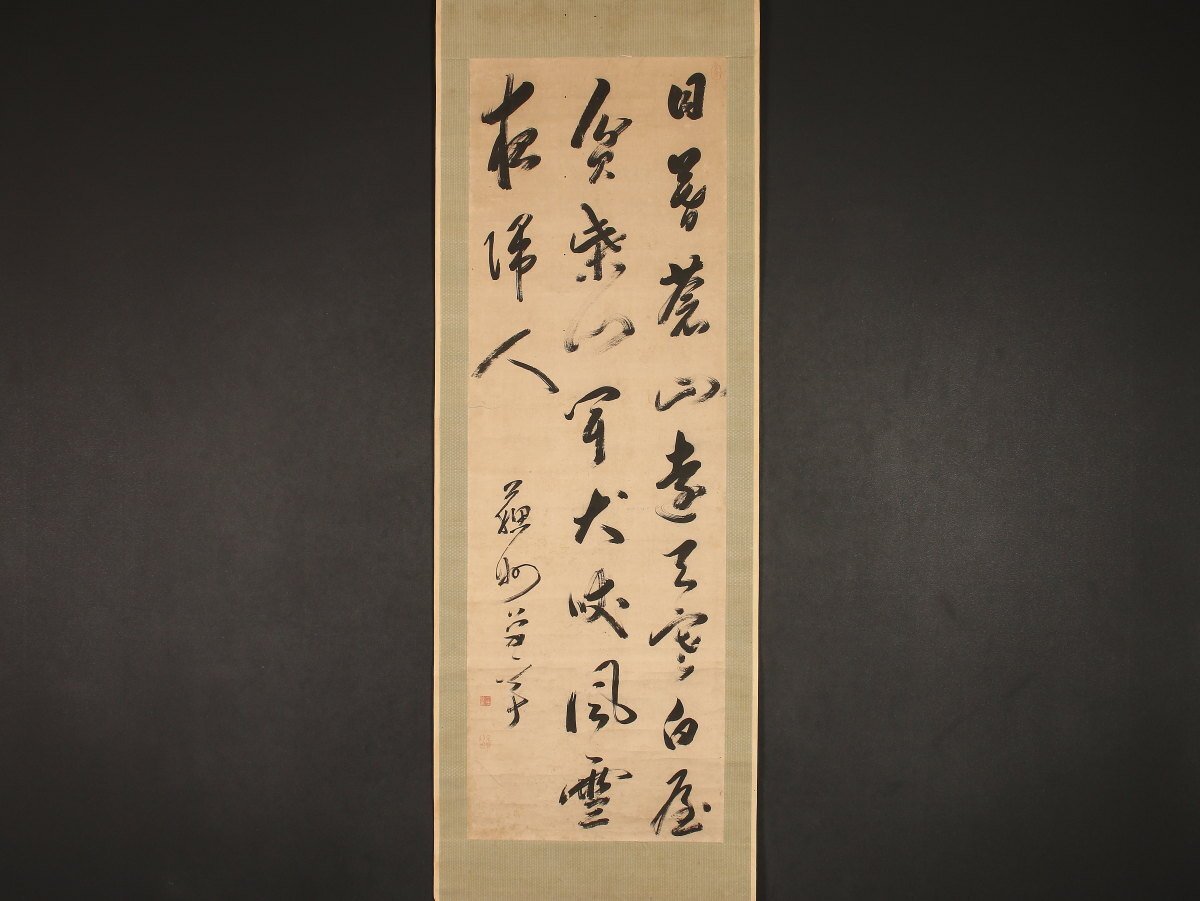 日暮蒼山遠天寒白屋
貧柴門聞犬吠風雪
夜歸人
蘇州